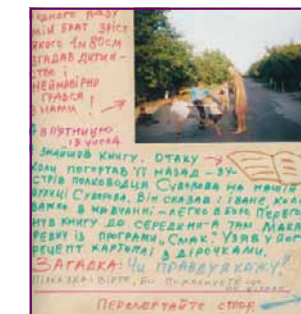 одного разу
мій брат зріст
якого 1м 80см
згадав дитин-
ство і
неймовірно
грався
з нами!
А в п'ятницю
13 числа
знайшов книгу. Отаку
коли погортав її назад - зу-
стрів полководця Суворова на нашій
вулиці Суворова. Він сказав: Іване, коли
важко в навчанні - легко в бою. Перегор-
нув книгу до середини - а там Мака-
ревич із програми „Смак." Узяв у
рецепт картоплі в дірочками.
Загадка: Чи правду я кажу?
Підказка: вірте, бо
Перегортайте стор